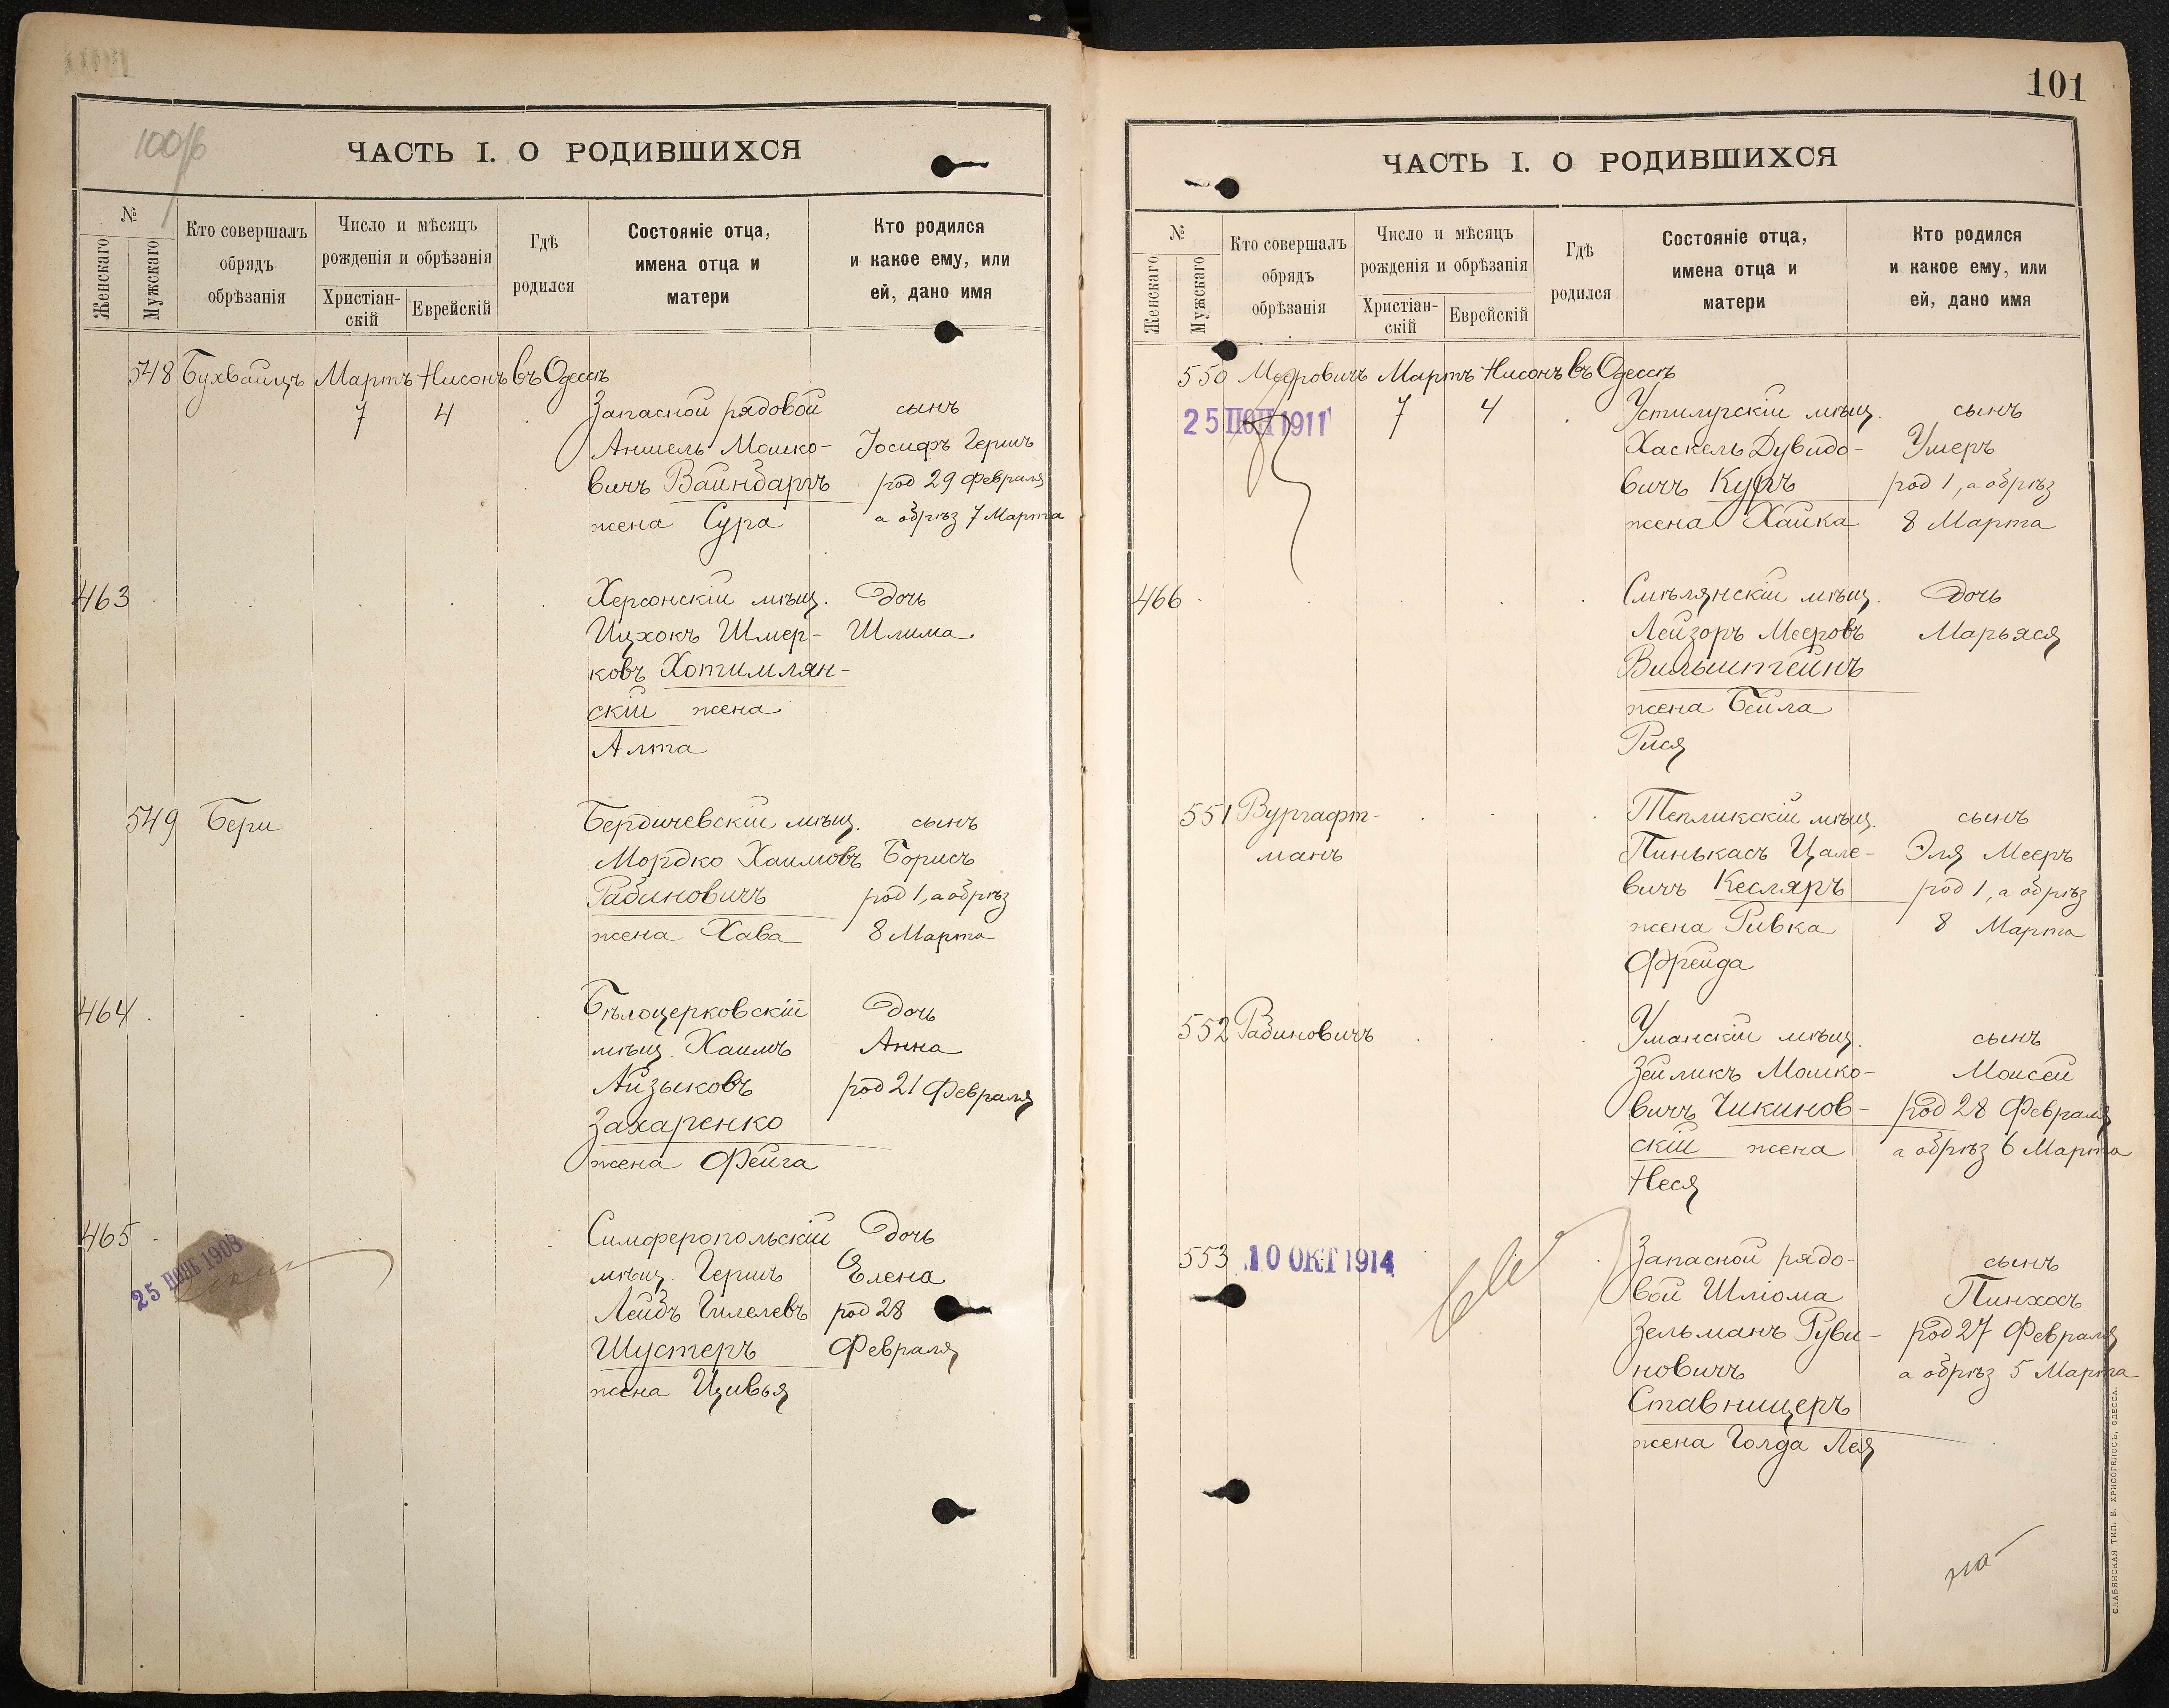 100/б
ЧАСТЬ I. О РОДИВШИХСЯ
№
Женскаго
Мужскаго
Кто совершалъ
обрядъ
обрѣзанія
Число и мѣсяцъ
рожденія и обрѣзанія
Христіан-
скій
Еврейскій
Гдѣ
родился
Состояніе отца,
имена отца и
матери
Кто родился
и какое ему, или
ей, дано имя
548 Бухвайцъ Мартъ Нисонъ въ Одессѣ
7 4 Запасной рядовой сынъ
Аншель Мошко- Іосифъ Гершъ
вичъ Вайнбаргъ род 29 Февраля
жена Сура а обрѣз 7 Марта
463 Херсонскій мѣщ. Дочь
Ицхокъ Шмер- Шлима
ковъ Хотимлян-
скій жена
Алта
549 Бери Бердичевскій мѣщ. сынъ
Мордко Хаимовъ Борисъ
Рабиновичъ род 1, а обрѣз
жена Хава 8 Марта
464 Бѣлоцерковскій Дочь
мѣщ. Хаимъ Анна
Айзыковъ род 21 Февраля
Захаренко
жена Фейга
465 Симферопольскій Дочь
25 НОЯБ 1908
мѣщ. Гершъ Елена
Лейбъ Гилелевъ род 28
Шустеръ Февраля
жена Цивья
101
ЧАСТЬ I. О РОДИВШИХСЯ
№
Женскаго
Мужскаго
Кто совершалъ
обрядъ
обрѣзанія
Число и мѣсяцъ
рожденія и обрѣзанія
Христіан-
скій
Еврейскій
Гдѣ
родился
Состояніе отца,
имена отца и
матери
Кто родился
и какое ему, или
ей, дано имя
550 Мееровичъ Мартъ Нисонъ въ Одессѣ
25 1911 7 4 Устилугскій мѣщ. сынъ
Хаскель Дувидо- Умеръ
вичъ род 1, а обрѣз
жена Хайка 8 Марта
466 Смѣлянскій мѣщ. Дочь
Лейзоръ Мееровъ Марьяся
Вильштейнъ
жена Бейла
Рися
551 Вургафт- Тепликскій мѣщ. сынъ
манъ Пинькасъ Цале- Эля Мееръ
вичъ Кесляръ род 1, а обрѣз
жена Ривка 8 Марта
Фрейда
552 Рабиновичъ Уманскій мѣщ. сынъ
Зейликъ Мошко- Моисей
вичъ Чикинов- род 28 Февраля
скій жена а обрѣз 6 Марта
Неся
553 10 ОКТ 1914 Запасной рядо- сынъ
вой Шліома Пинхосъ
Зельманъ Руви- род 27 Февраля
новичъ а обрѣз 5 Марта
Ставницеръ
жена Голда Лея
СЛАВЯНСКАЯ ТИП. Е. ХРИСОГЕЛОСЪ, ОДЕССА.